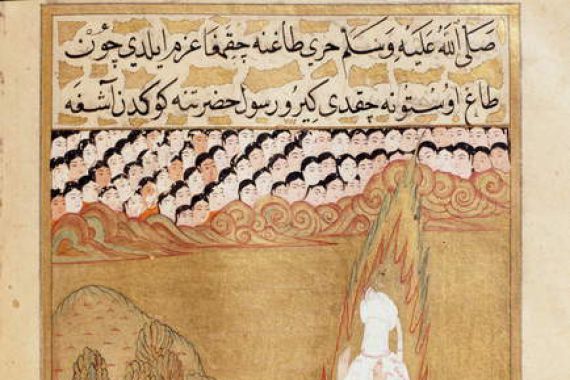 صَلَّى اللهُ عَلَيْهِ وَسَلَّمَ حرى طاغنه چقمغا عزم ايلدي چون
طاغ اوستونه چقدى كيرو رسول حضرتنه كوكدن آشغه